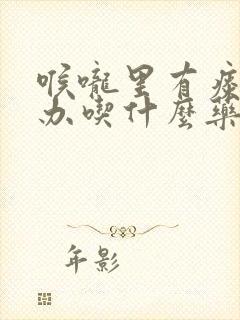 喉嚨里有痰
办喫什麼藥
年影